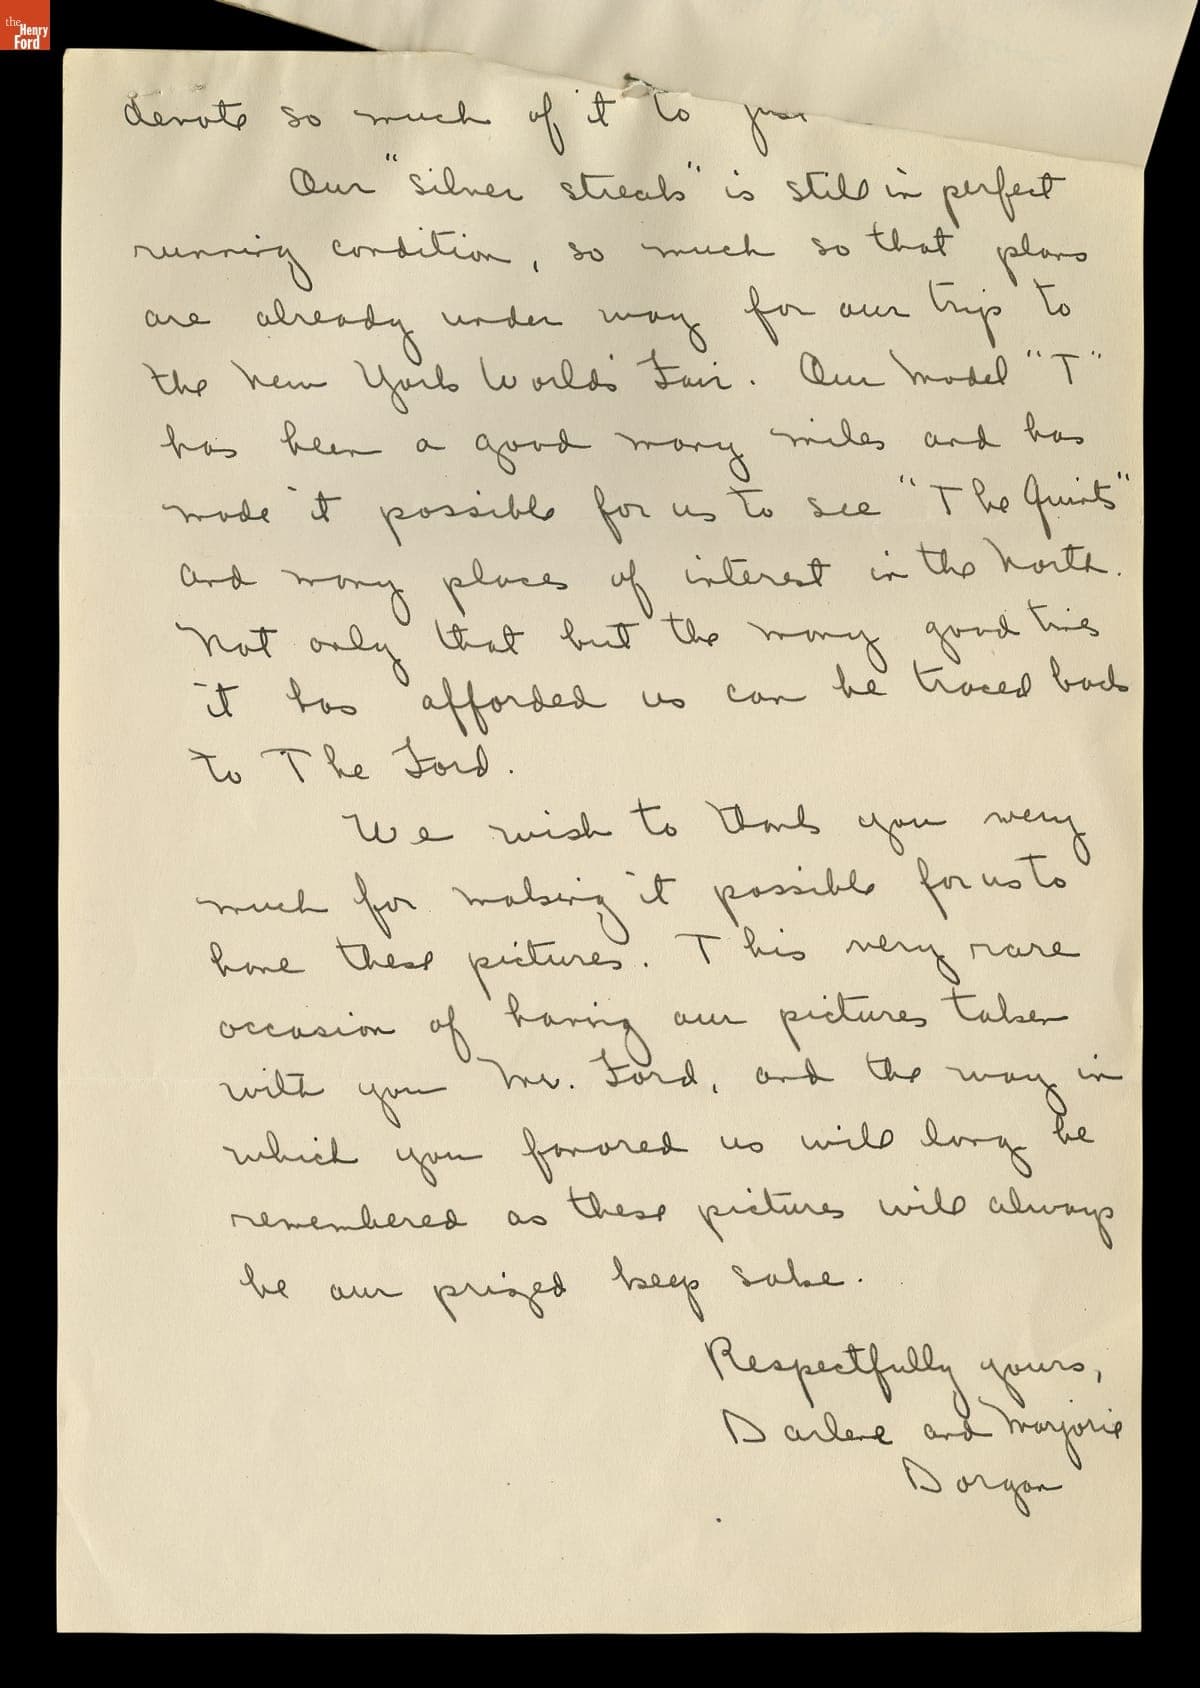 the
Henry
Ford
devote so much of it to
Our "silver streak" is still in perfect
running condition, so much so that plans
are already under way for our trip to
the New York Worlds Fair. Our Model "T"
has been a good many miles and has
made it possible for us to see "The Quints"
and many places of interest in the North.
Not only that but the many good times
it has afforded us can be traced back
to The Ford.
We wish to thank you very
much for making it possible for us to
have these pictures. This very rare
occasion of having our pictures taken
with you Mr. Ford, and the way in
which you favored us will long be
remembered as these pictures will always
be our prized keep sake.
Respectfully yours,
Darlene and Marjorie
Dorgan